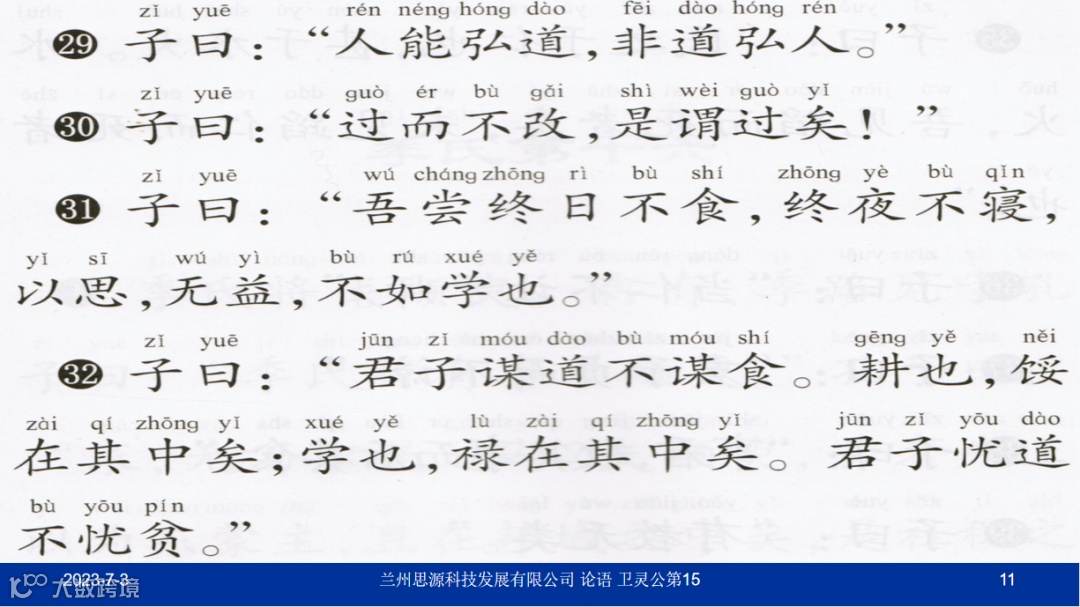 zǐ yuē rén néng hóng dào fēi dào hóng rén
29 子曰：“人能弘道，非道弘人。”
zǐ yuē guò ér bù gǎi shì wèi guò yǐ
30 子曰：“过而不改，是谓过矣！”
zǐ yuē wú cháng zhōng rì bù shí zhōng yè bù qǐn
31 子曰：“吾尝终日不食，终夜不寝，
yǐ sī wú yì bù rú xué yě
以思，无益，不如学也。”
zǐ yuē jūn zǐ móu dào bù móu shí gēng yě něi
32 子曰：“君子谋道不谋食。耕也，馁
zài qí zhōng yǐ xué yě lù zài qí zhōng yǐ jūn zǐ yōu dào
在其中矣；学也，禄在其中矣。君子忧道
bù yōu pín
不忧贫。”
2023-7-3 兰州思源科技发展有限公司 论语 卫灵公第15 11
大数跨境